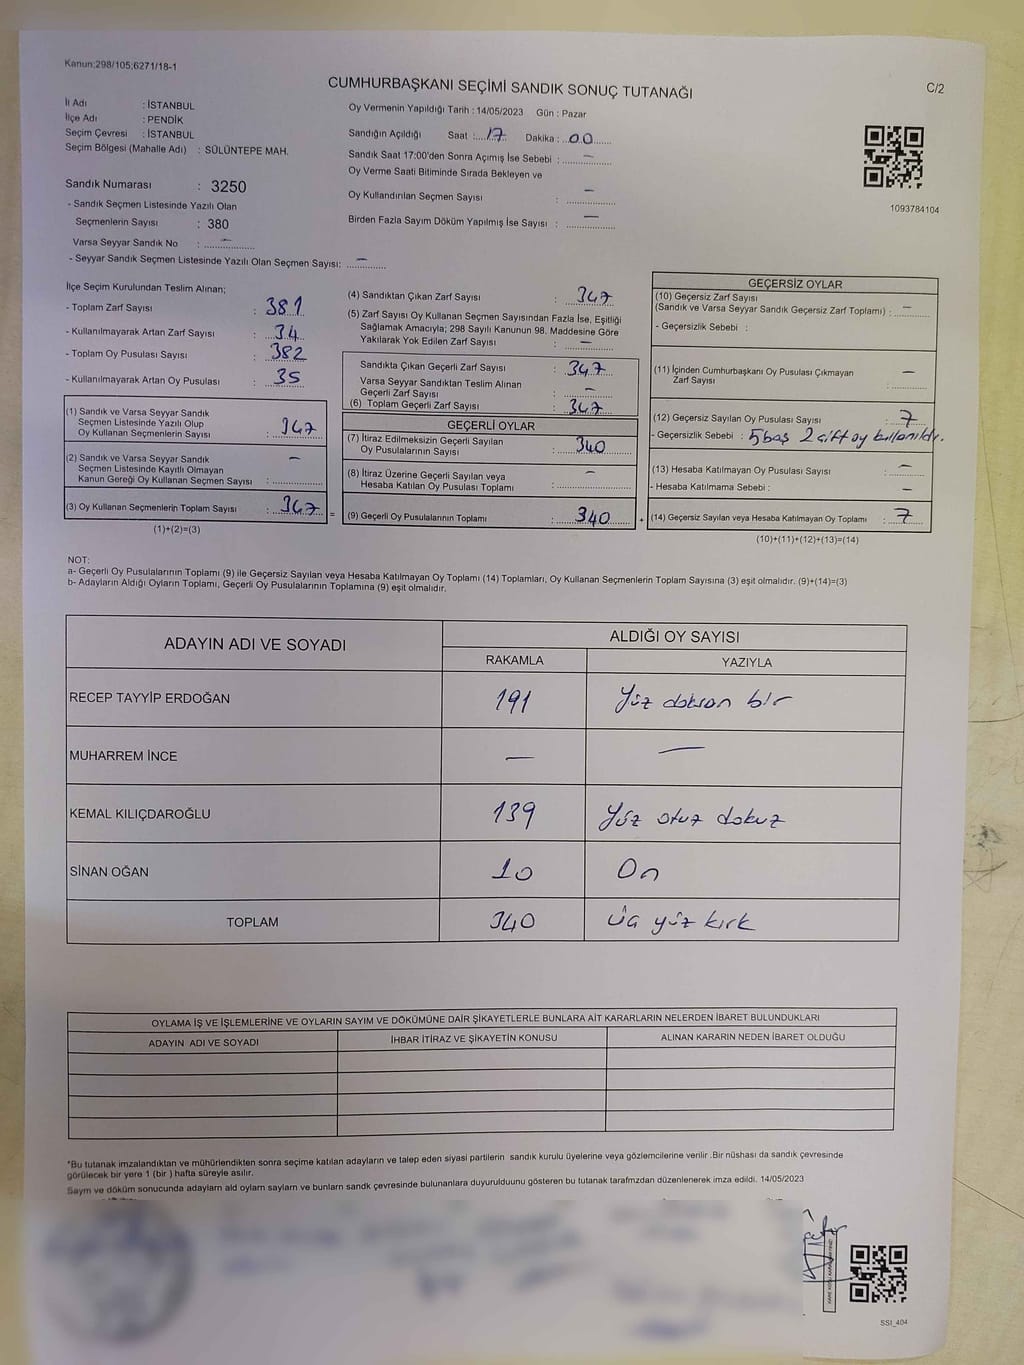 Kanun;298/105;6271/18-1
CUMHURBAŞKANI SEÇİMİ SANDIK SONUÇ TUTANAĞI
C/2
İl Adı : İSTANBUL
İlçe Adı : PENDİK
Seçim Çevresi : İSTANBUL
Seçim Bölgesi (Mahalle Adı) : SÜLÜNTEPE MAH.
Sandık Numarası : 3250
- Sandık Seçmen Listesinde Yazılı Olan
Seçmenlerin Sayısı : 380
Varsa Seyyar Sandık No : —
- Seyyar Sandık Seçmen Listesinde Yazılı Olan Seçmen Sayısı: —
Oy Vermenin Yapıldığı Tarih : 14/05/2023 Gün : Pazar
Sandığın Açıldığı Saat : 17 Dakika : 00
Sandık Saat 17:00'den Sonra Açımış İse Sebebi : —
Oy Verme Saati Bitiminde Sırada Bekleyen ve
Oy Kullandırılan Seçmen Sayısı : —
Birden Fazla Sayım Döküm Yapılmış İse Sayısı : —
1093784104
İlçe Seçim Kurulundan Teslim Alınan;
- Toplam Zarf Sayısı : 381
- Kullanılmayarak Artan Zarf Sayısı : 34
- Toplam Oy Pusulası Sayısı : 382
- Kullanılmayarak Artan Oy Pusulası : 35
(1) Sandık ve Varsa Seyyar Sandık
Seçmen Listesinde Yazılı Olup
Oy Kullanan Seçmenlerin Sayısı : 347
(2) Sandık ve Varsa Seyyar Sandık
Seçmen Listesinde Kayıtlı Olmayan
Kanun Gereği Oy Kullanan Seçmen Sayısı : —
(3) Oy Kullanan Seçmenlerin Toplam Sayısı : 347
(1)+(2)=(3)
(4) Sandıktan Çıkan Zarf Sayısı : 347
(5) Zarf Sayısı Oy Kullanan Seçmen Sayısından Fazla İse, Eşitliği
Sağlamak Amacıyla; 298 Sayılı Kanunun 98. Maddesine Göre
Yakılarak Yok Edilen Zarf Sayısı : —
Sandıkta Çıkan Geçerli Zarf Sayısı : 347
Varsa Seyyar Sandıktan Teslim Alınan
Geçerli Zarf Sayısı : —
(6) Toplam Geçerli Zarf Sayısı : 347
GEÇERLİ OYLAR
(7) İtiraz Edilmeksizin Geçerli Sayılan
Oy Pusulalarının Sayısı : 340
(8) İtiraz Üzerine Geçerli Sayılan veya
Hesaba Katılan Oy Pusulası Toplamı : —
= (9) Geçerli Oy Pusulalarının Toplamı : 340
GEÇERSİZ OYLAR
(10) Geçersiz Zarf Sayısı
(Sandık ve Varsa Seyyar Sandık Geçersiz Zarf Toplamı) : —
- Geçersizlik Sebebi :
(11) İçinden Cumhurbaşkanı Oy Pusulası Çıkmayan
Zarf Sayısı : —
(12) Geçersiz Sayılan Oy Pusulası Sayısı : 7
- Geçersizlik Sebebi : 5 baş 2 çift oy kullanıldı.
(13) Hesaba Katılmayan Oy Pusulası Sayısı : —
- Hesaba Katılmama Sebebi : —
+ (14) Geçersiz Sayılan veya Hesaba Katılmayan Oy Toplamı : 7
(10)+(11)+(12)+(13)=(14)
NOT:
a- Geçerli Oy Pusulalarının Toplamı (9) ile Geçersiz Sayılan veya Hesaba Katılmayan Oy Toplamı (14) Toplamları, Oy Kullanan Seçmenlerin Toplam Sayısına (3) eşit olmalıdır. (9)+(14)=(3)
b- Adayların Aldığı Oyların Toplamı, Geçerli Oy Pusulalarının Toplamına (9) eşit olmalıdır.
ADAYIN ADI VE SOYADI ALDIĞI OY SAYISI
RAKAMLA YAZIYLA
RECEP TAYYİP ERDOĞAN 191 Yüz doksan bir
MUHARREM İNCE — —
KEMAL KILIÇDAROĞLU 139 Yüz otuz dokuz
SİNAN OĞAN 10 On
TOPLAM 340 üç yüz kırk
OYLAMA İŞ VE İŞLEMLERİNE VE OYLARIN SAYIM VE DÖKÜMÜNE DAİR ŞİKAYETLERLE BUNLARA AİT KARARLARIN NELERDEN İBARET BULUNDUKLARI
ADAYIN ADI VE SOYADI İHBAR İTİRAZ VE ŞİKAYETİN KONUSU ALINAN KARARIN NEDEN İBARET OLDUĞU
*Bu tutanak imzalandıktan ve mühürlendikten sonra seçime katılan adayların ve talep eden siyasi partilerin sandık kurulu üyelerine veya gözlemcilerine verilir .Bir nüshası da sandık çevresinde
görülecek bir yere 1 (bir ) hafta süreyle asılır.
Sayım ve döküm sonucunda adayların ald oyların sayları ve bunların sandk çevresinde bulunanlara duyurulduunu gösteren bu tutanak tarafmzdan düzenlenerek imza edildi. 14/05/2023
SSI_404